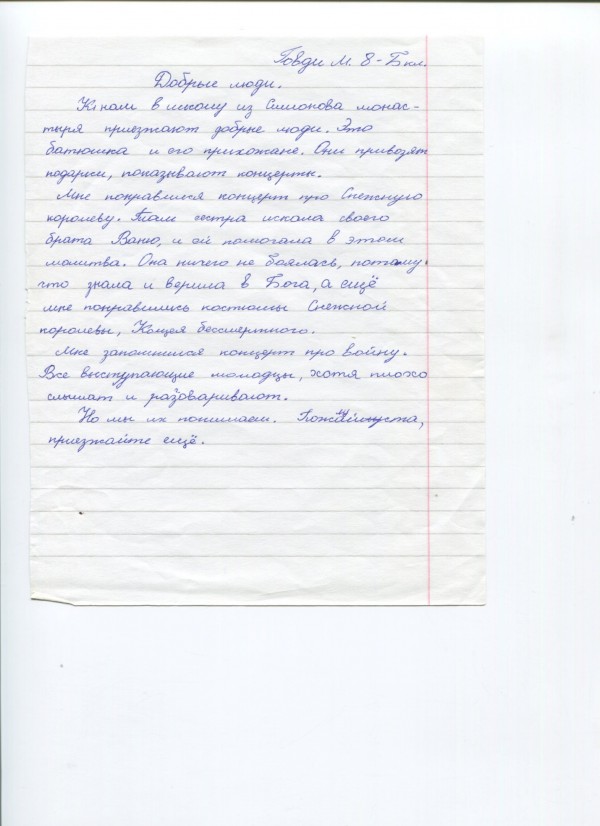 Говди М. 8-Б кл.
Добрые люди.
К нам в школу из Симонова монас-
тыря приезжают добрые люди. Это
батюшка и его прихожане. Они привозят
подарки, показывают концерты.
Мне понравился концерт про Снежную
королеву. Там сестра искала своего
брата Ваню, и ей помогала в этом
молитва. Она ничего не боялась, потому
что знала и верила в Бога, а ещё
мне понравились костюмы Снежной
королевы, Кощея бессмертного.
Мне запомнился концерт про войну.
Все выступающие молодцы, хотя плохо
слышат и разговаривают.
Но мы их понимаем. Пожалуйста,
приезжайте ещё.